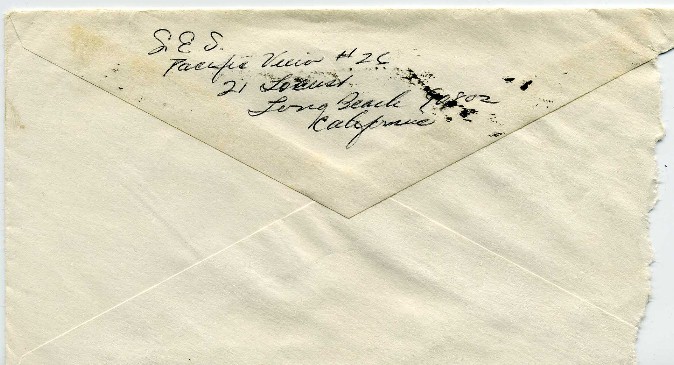 S. E. S.
Pacific View #26
21 Locust
Long Beach 90802
California